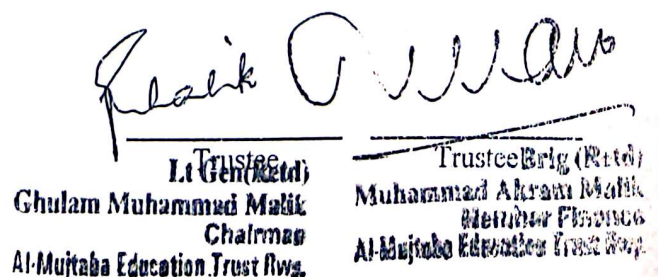 Trustee
Lt Gen (Retd)
Ghulam Muhammad Malik
Chairman
Al-Mujtaba Education Trust Rwp.
Trustee
Brig (Retd)
Muhammad Akram Malik
Member Finance
Al-Mujtaba Education Trust Rwp.